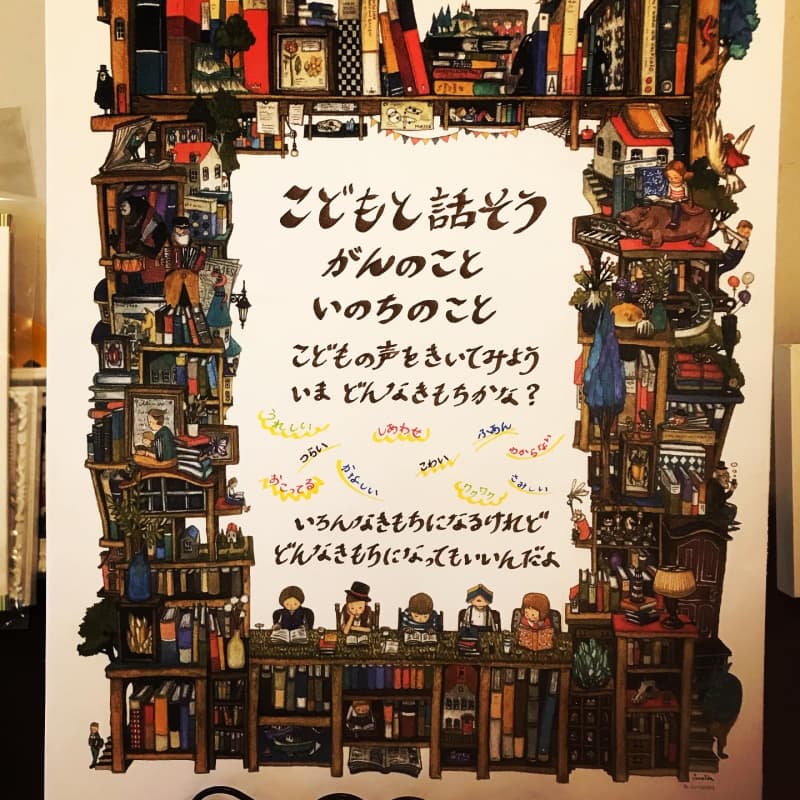 こどもと話そう
がんのこと
いのちのこと
こどもの声をきいてみよう
いま どんなきもちかな?
うれしい
しあわせ
ふあん
つらい
わからない
おこってる
かなしい
こわい
ワクワク
さみしい
いろんなきもちになるけれど
どんなきもちになってもいいんだよ